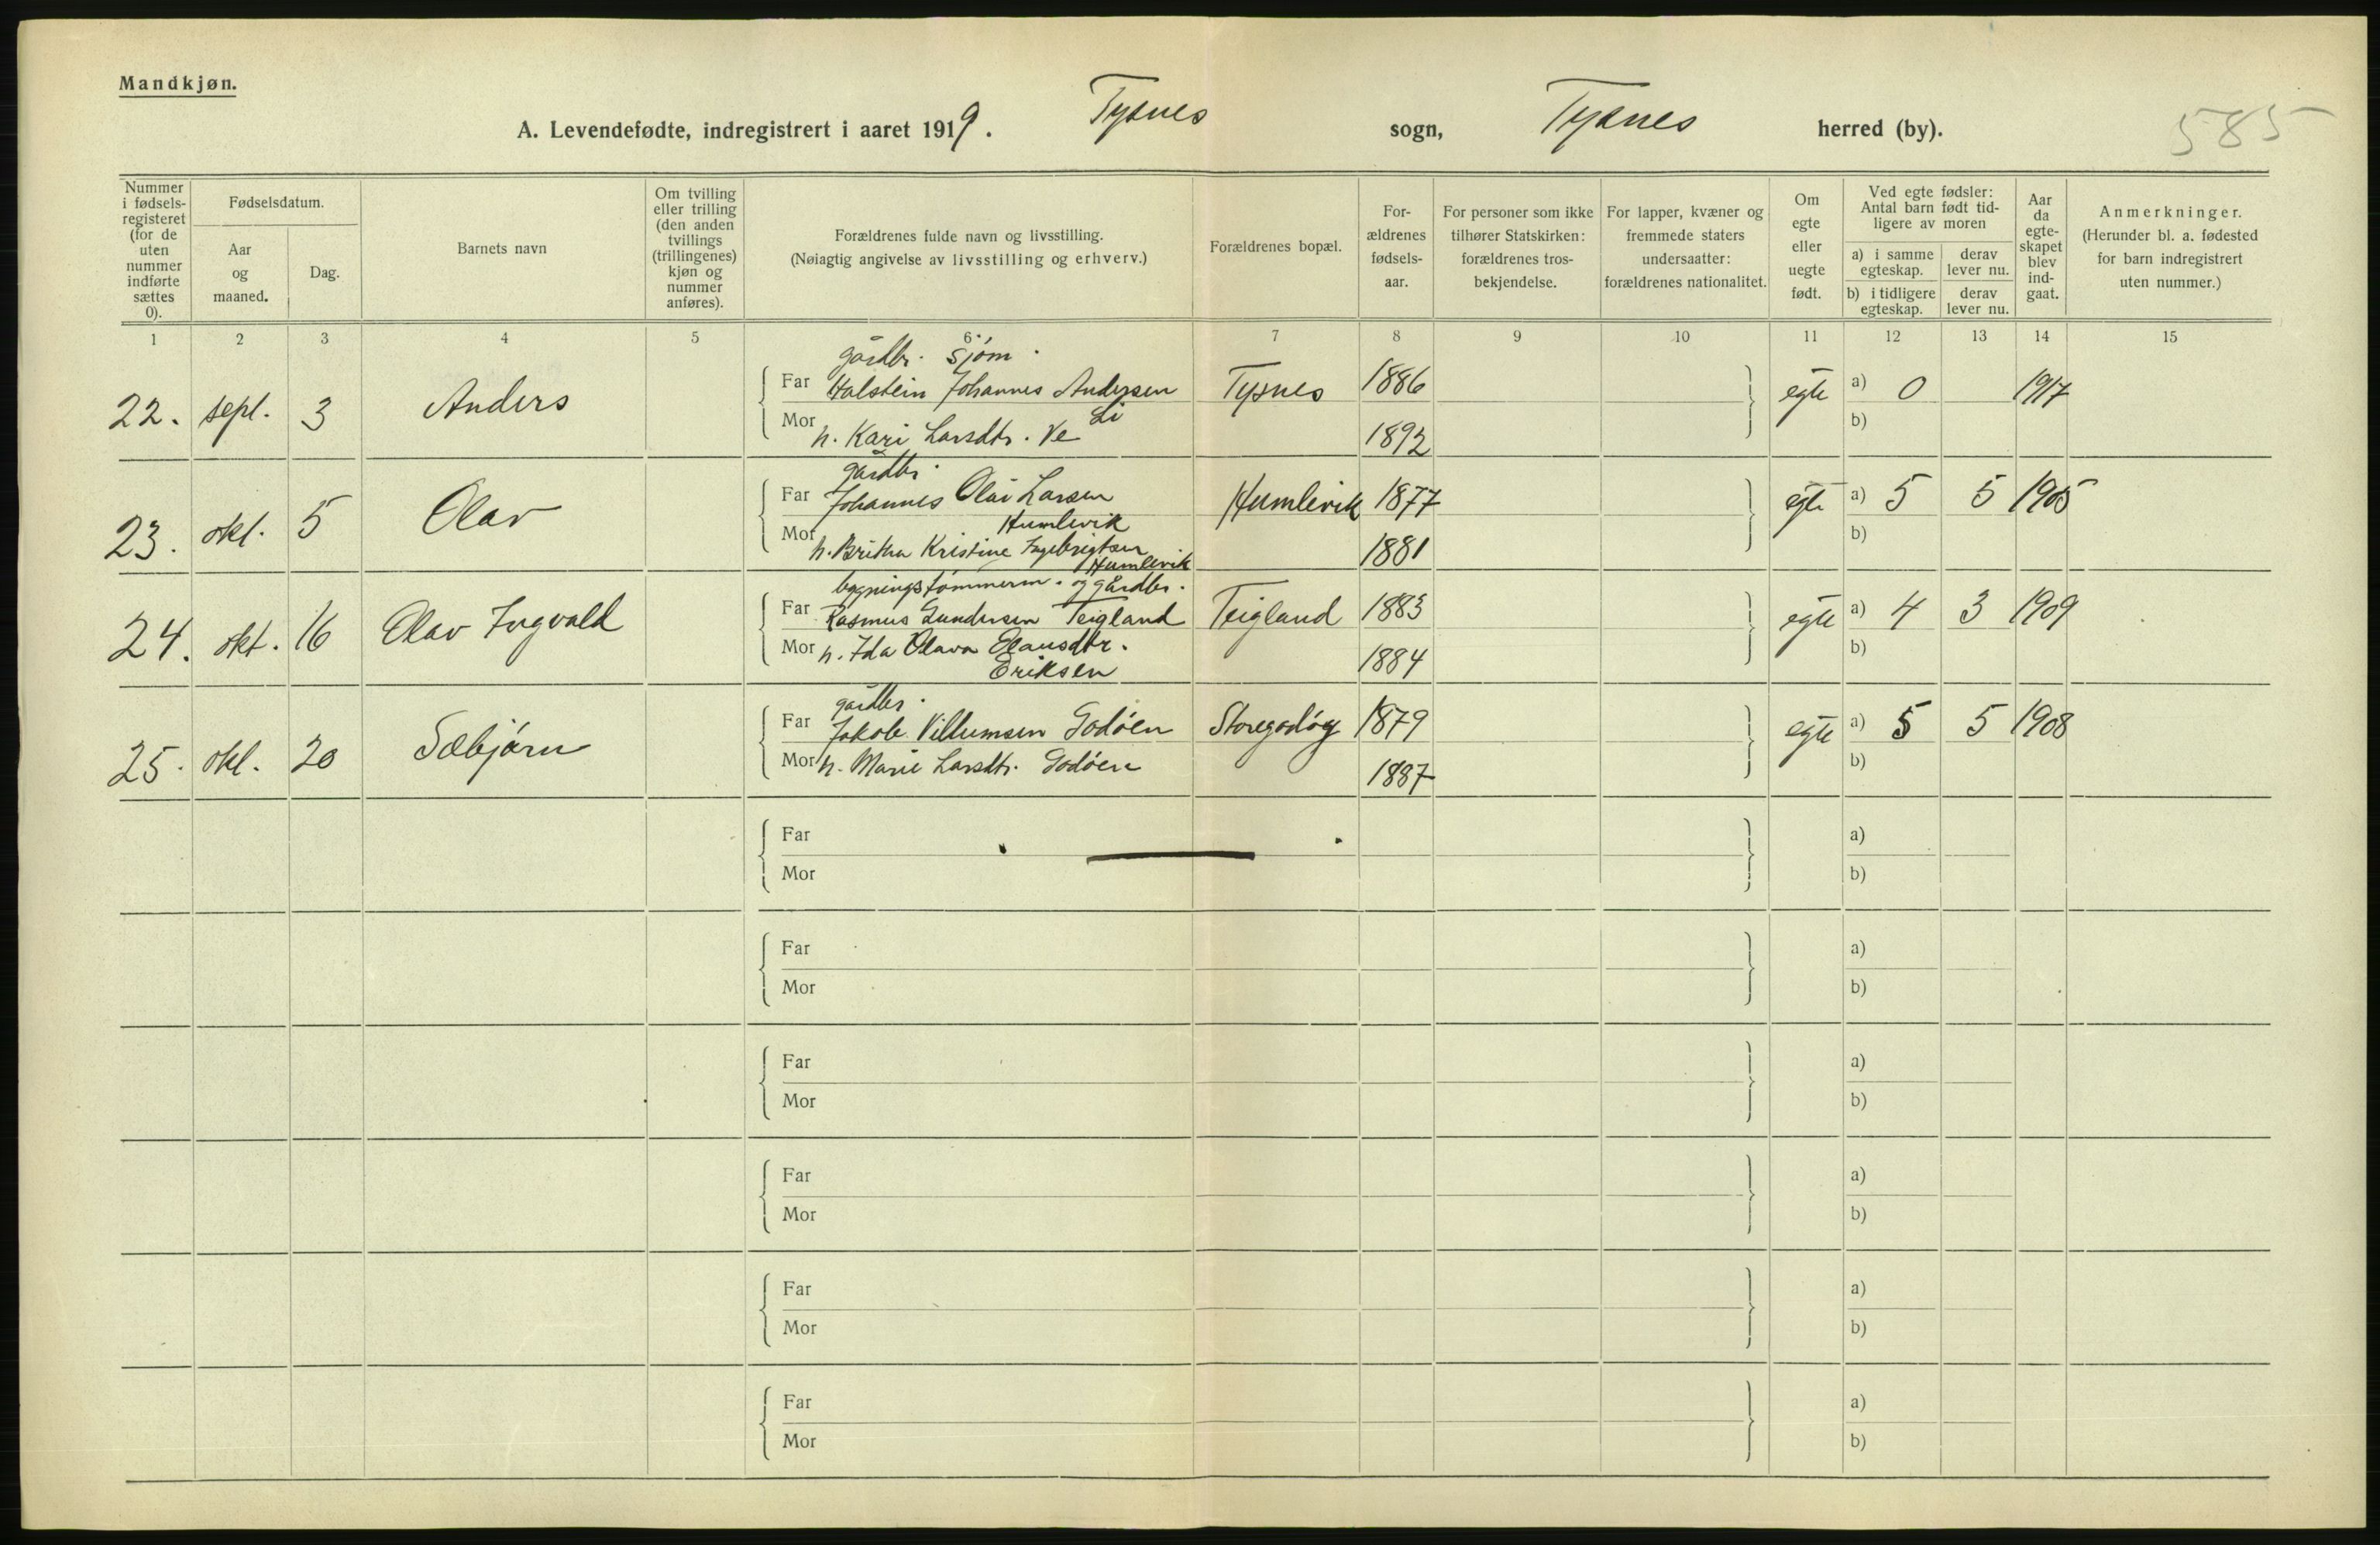 Mandkjøn.
A. Levendefødte, indregistrert i aaret 1919. Tysnes sogn, Tysnes herred (by). 585
Nummer i fødselsregisteret (for de uten nummer indførte sættes 0).
Fødselsdatum.
Aar og maaned.
Dag.
Barnets navn
Om tvilling eller trilling (den anden tvillings (trillingenes) kjøn og nummer anføres).
Forældrenes fulde navn og livsstilling.
(Nøiagtig angivelse av livsstilling og erhverv.)
Forældrenes bopæl.
Forældrenes fødselsaar.
For personer som ikke tilhører Statskirken: forældrenes trosbekjendelse.
For lapper, kvæner og fremmede staters undersaatter: forældrenes nationalitet.
Om egte eller uegte født.
Ved egte fødsler: Antal barn født tidligere av moren
a) i samme egteskap. derav lever nu.
b) i tidligere egteskap. derav lever nu.
Aar da egteskapet blev indgaat.
Anmerkninger.
(Herunder bl. a. fødested for barn indregistrert uten nummer.)
1 2 3 4 5 6 7 8 9 10 11 12 13 14 15
gårdbr. sjøm.
22. sept. 3 Anders Far Halstein Johannes Andersen Li Tysnes 1886 egte a) 0 1917
Mor n. Kari Larsdtr. Ve 1892 b)
gårdbr.
23. okt. 5 Olav Far Johannes Olai Larsen Humlevik Humlevik 1877 egte a) 5 5 1905
Mor n. Britha Kristine Ingebrigtsen Humlevik 1881 b)
bygningstømmerm. og gårdbr.
24. okt. 16 Olav Ingvald Far Rasmus Gundersen Teigland Teigland 1883 egte a) 4 3 1909
Mor n. Ida Olava Olausdtr. Eriksen 1884 b)
gårdbr.
25. okt. 20 Sæbjørn Far Jakob Villumsen Godøen Storegodøy 1879 egte a) 5 5 1908
Mor n. Marie Larsdtr. Godøen 1887 b)
Far a)
Mor b)
Far a)
Mor b)
Far a)
Mor b)
Far a)
Mor b)
Far a)
Mor b)
Far a)
Mor b)